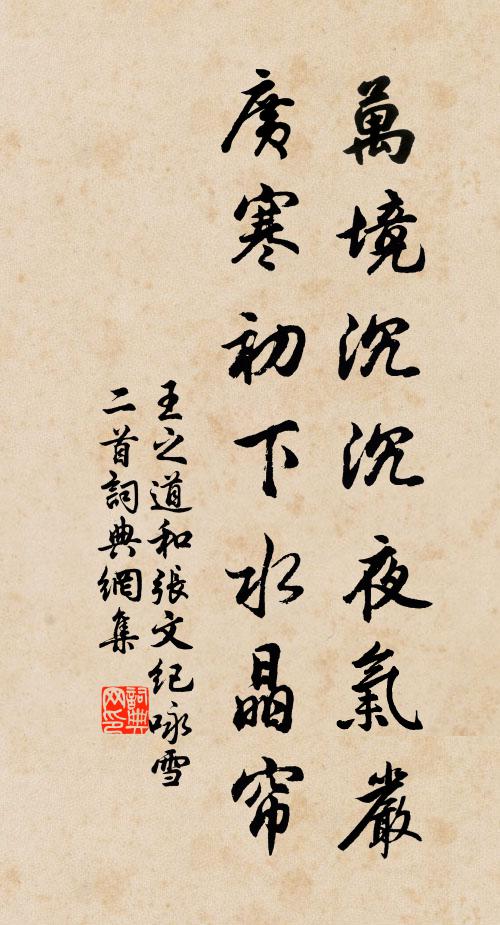 萬境沉沉夜氣嚴
廣寒初下水晶帘
王之道和張文紀咏雪
二首詞典網集
詞典
网印